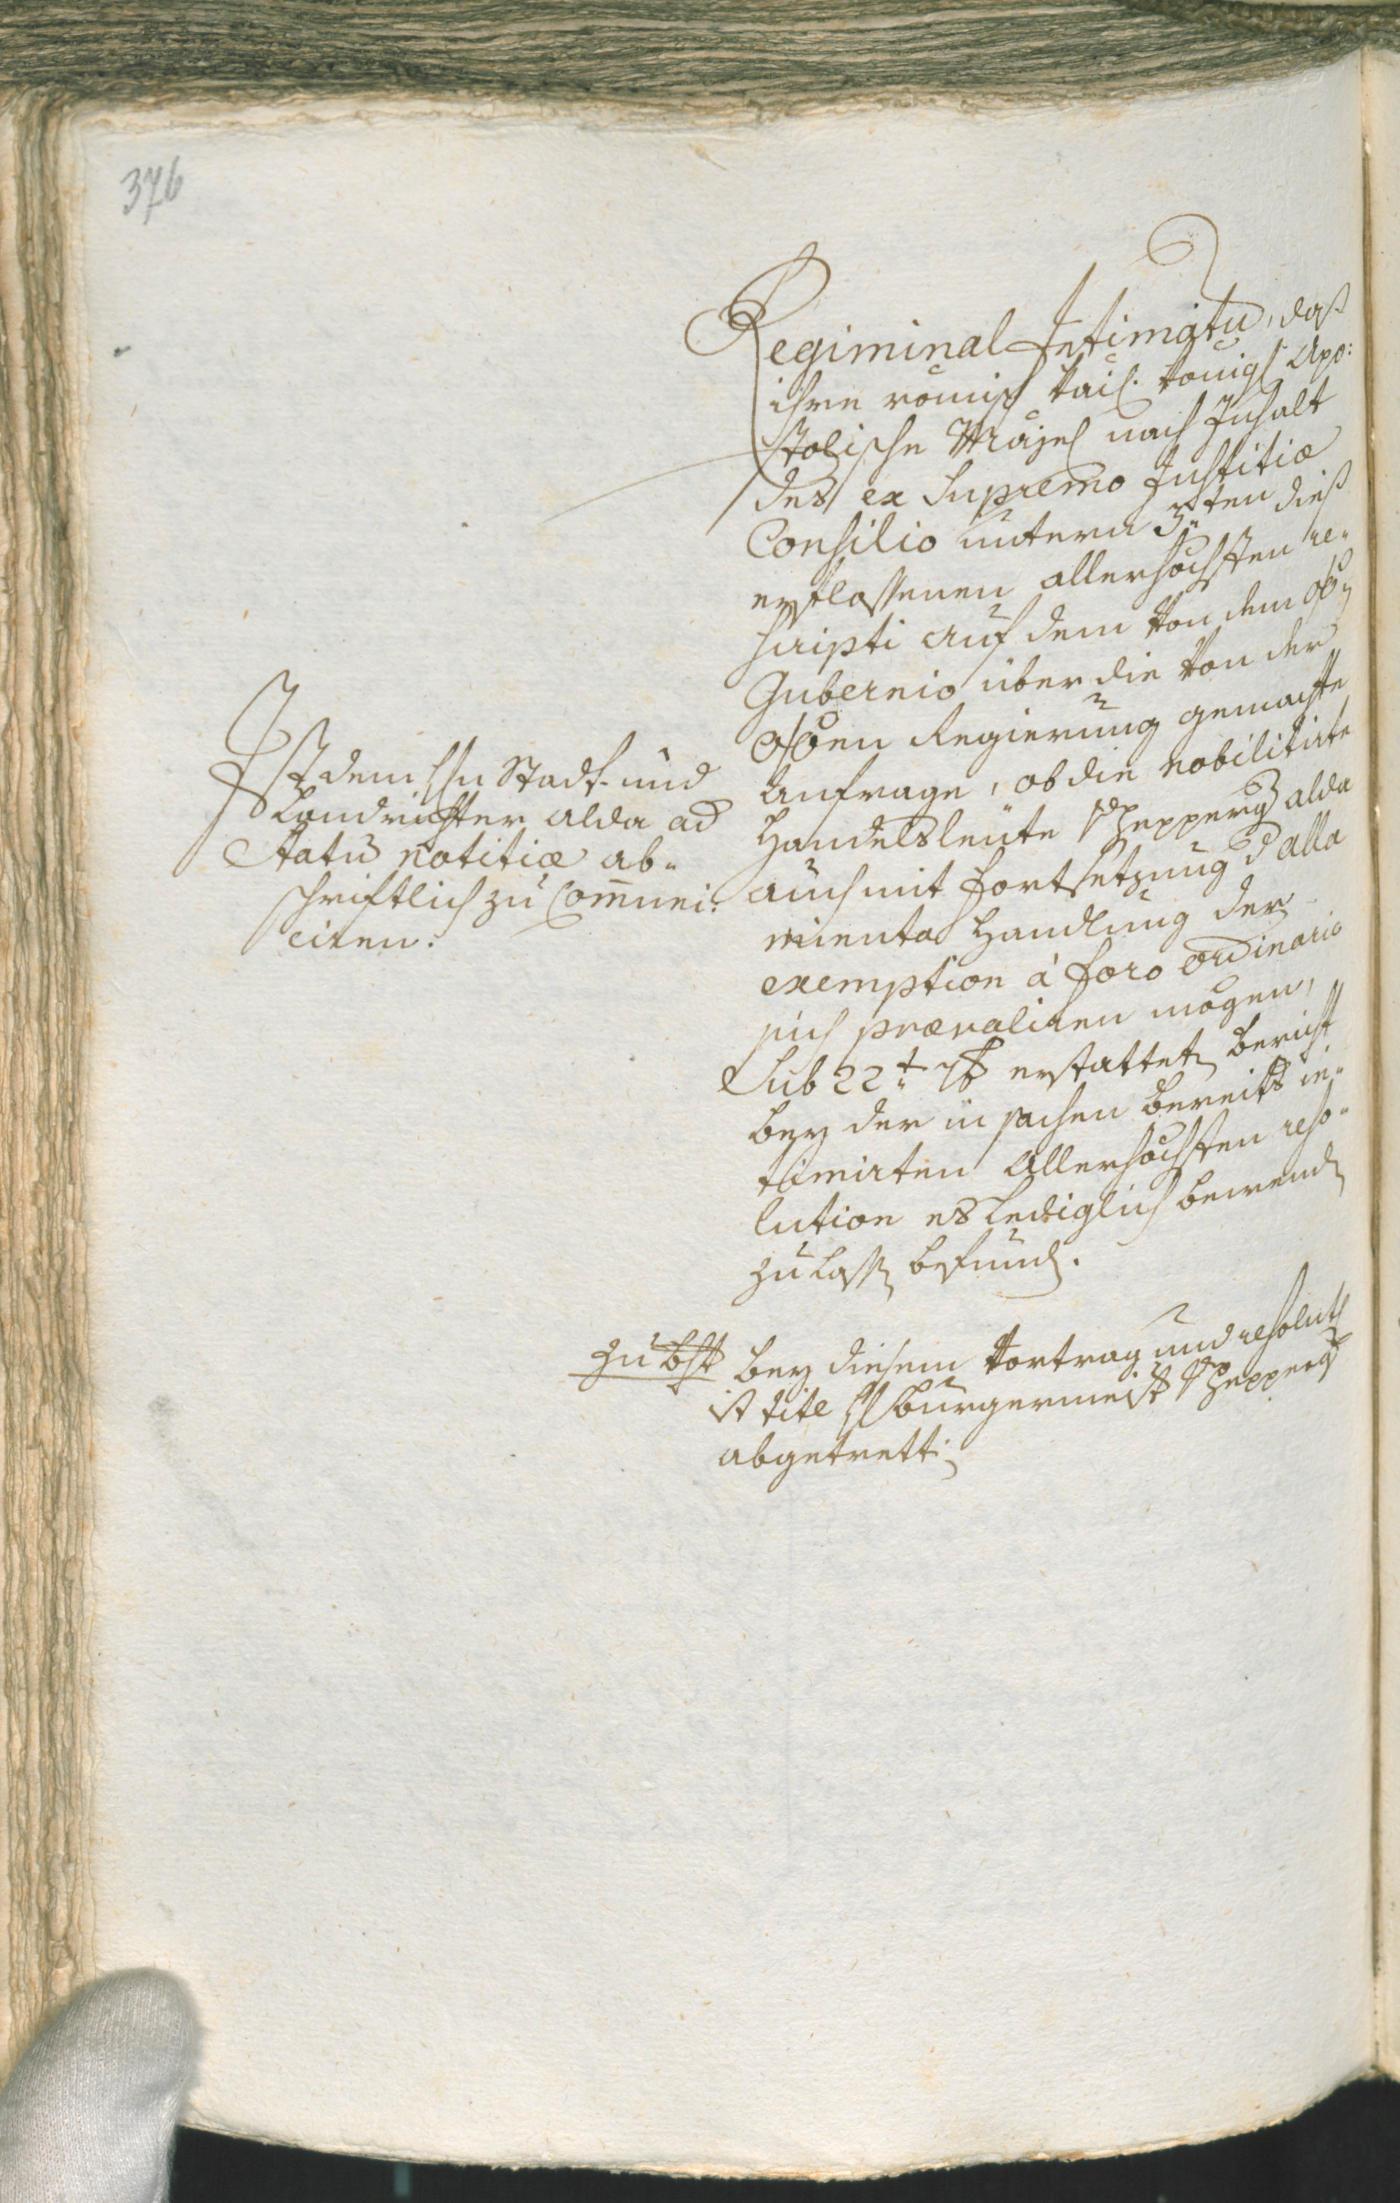 376
Regiminal Intimatu, daß
ihre römisch kais. königl Apo:
stolische Majest nach Inhalt
des ex Supremo Justitiæ
Consilio untern 3ten dieß
erstlassenen allerhöchsten re„
scripti auf dem von dem
Gubernio über die von der
oöen Regierung gemachte
Anfrage, ob die nobilitirte
Handelsleüte alda
auch mit fortsetzung d alla
minenta Handlung der
exemption à foro ordinario
sich prævaliren mögen,
Sub 22t 7b erstatteten bericht
bey der in sachen bereits in„
timirten Allerhöchsten reso„
lution es lediglich bewenden
zu lassen befunden.
Ist dem Hhn Stadt- und
Landrichter alda ad
Statum notitiæ ab„
schriftlich zu Commni„
ciren.
zu bey diesem vortrag und resolution
ist titl H burgermeister
abgetretten